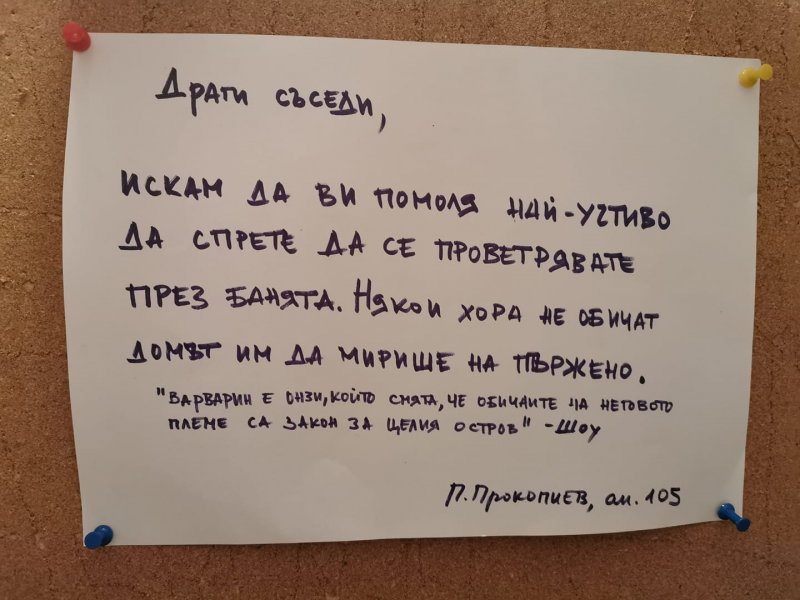 Драги съседи,
искам да ви помоля най-учтиво
да спрете да се проветрявате
през банята. Някои хора не обичат
домът им да мирише на пържено.
"Варварин е онзи, който смята, че обичаите на неговото
племе са закон за целия остров" - Шоу
П. Прокопиев, ап. 105